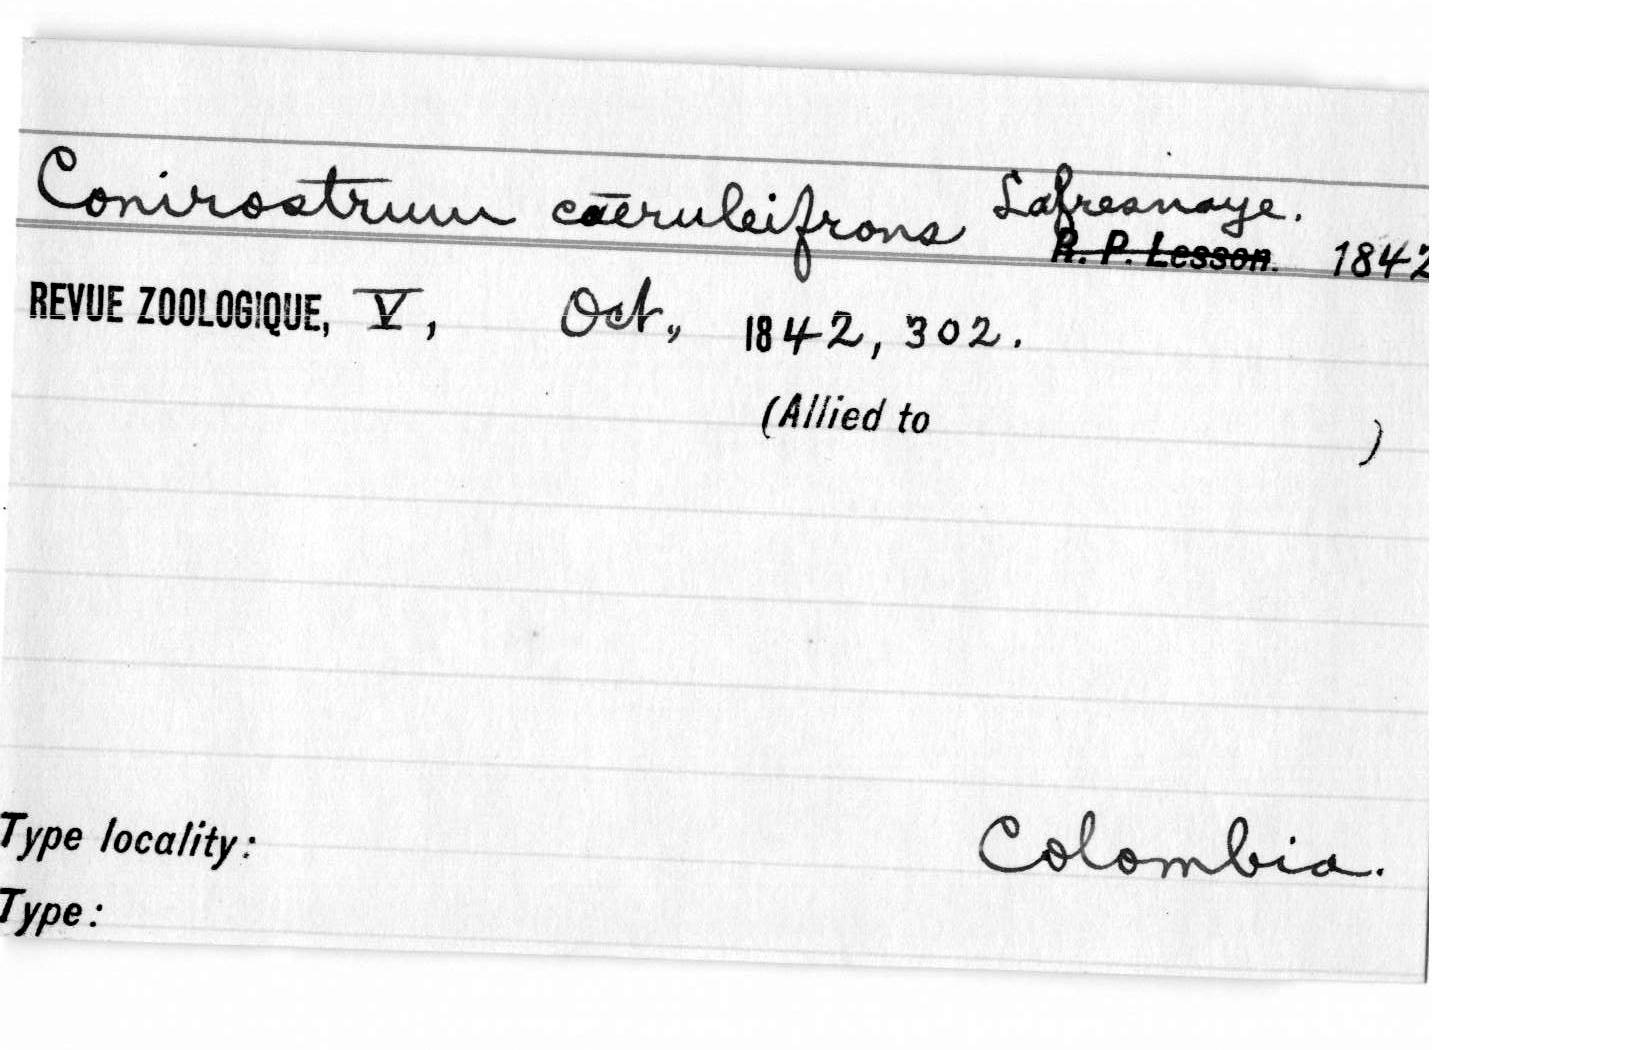 Conirostrum caeruleifrons Lafresnaye.
R. P. Lesson. 1842
REVUE ZOOLOGIQUE, V, Oct., 1842, 302.
(Allied to )
Type locality: Colombia.
Type: